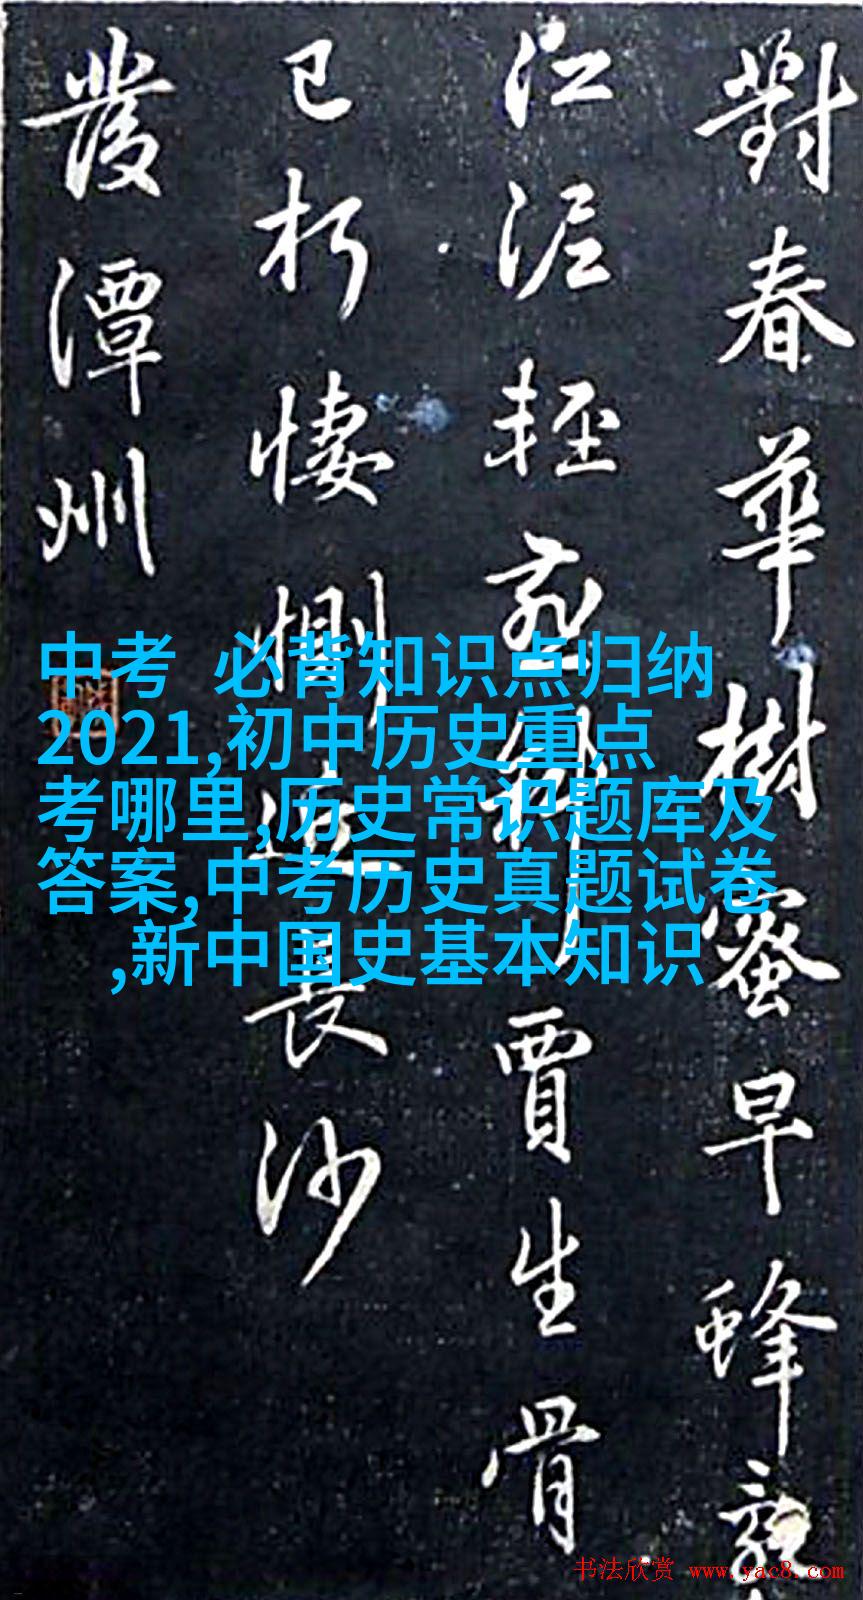 對春華樹蜜早蜂
江泥輕
賈生骨
已朽悽惻近長沙
發潭州
中考 必背知识点归纳
2021,初中历史重点
考哪里,历史常识题库及
答案,中考历史真题试卷
,新中国史基本知识
书法欣赏 www.yac8.com